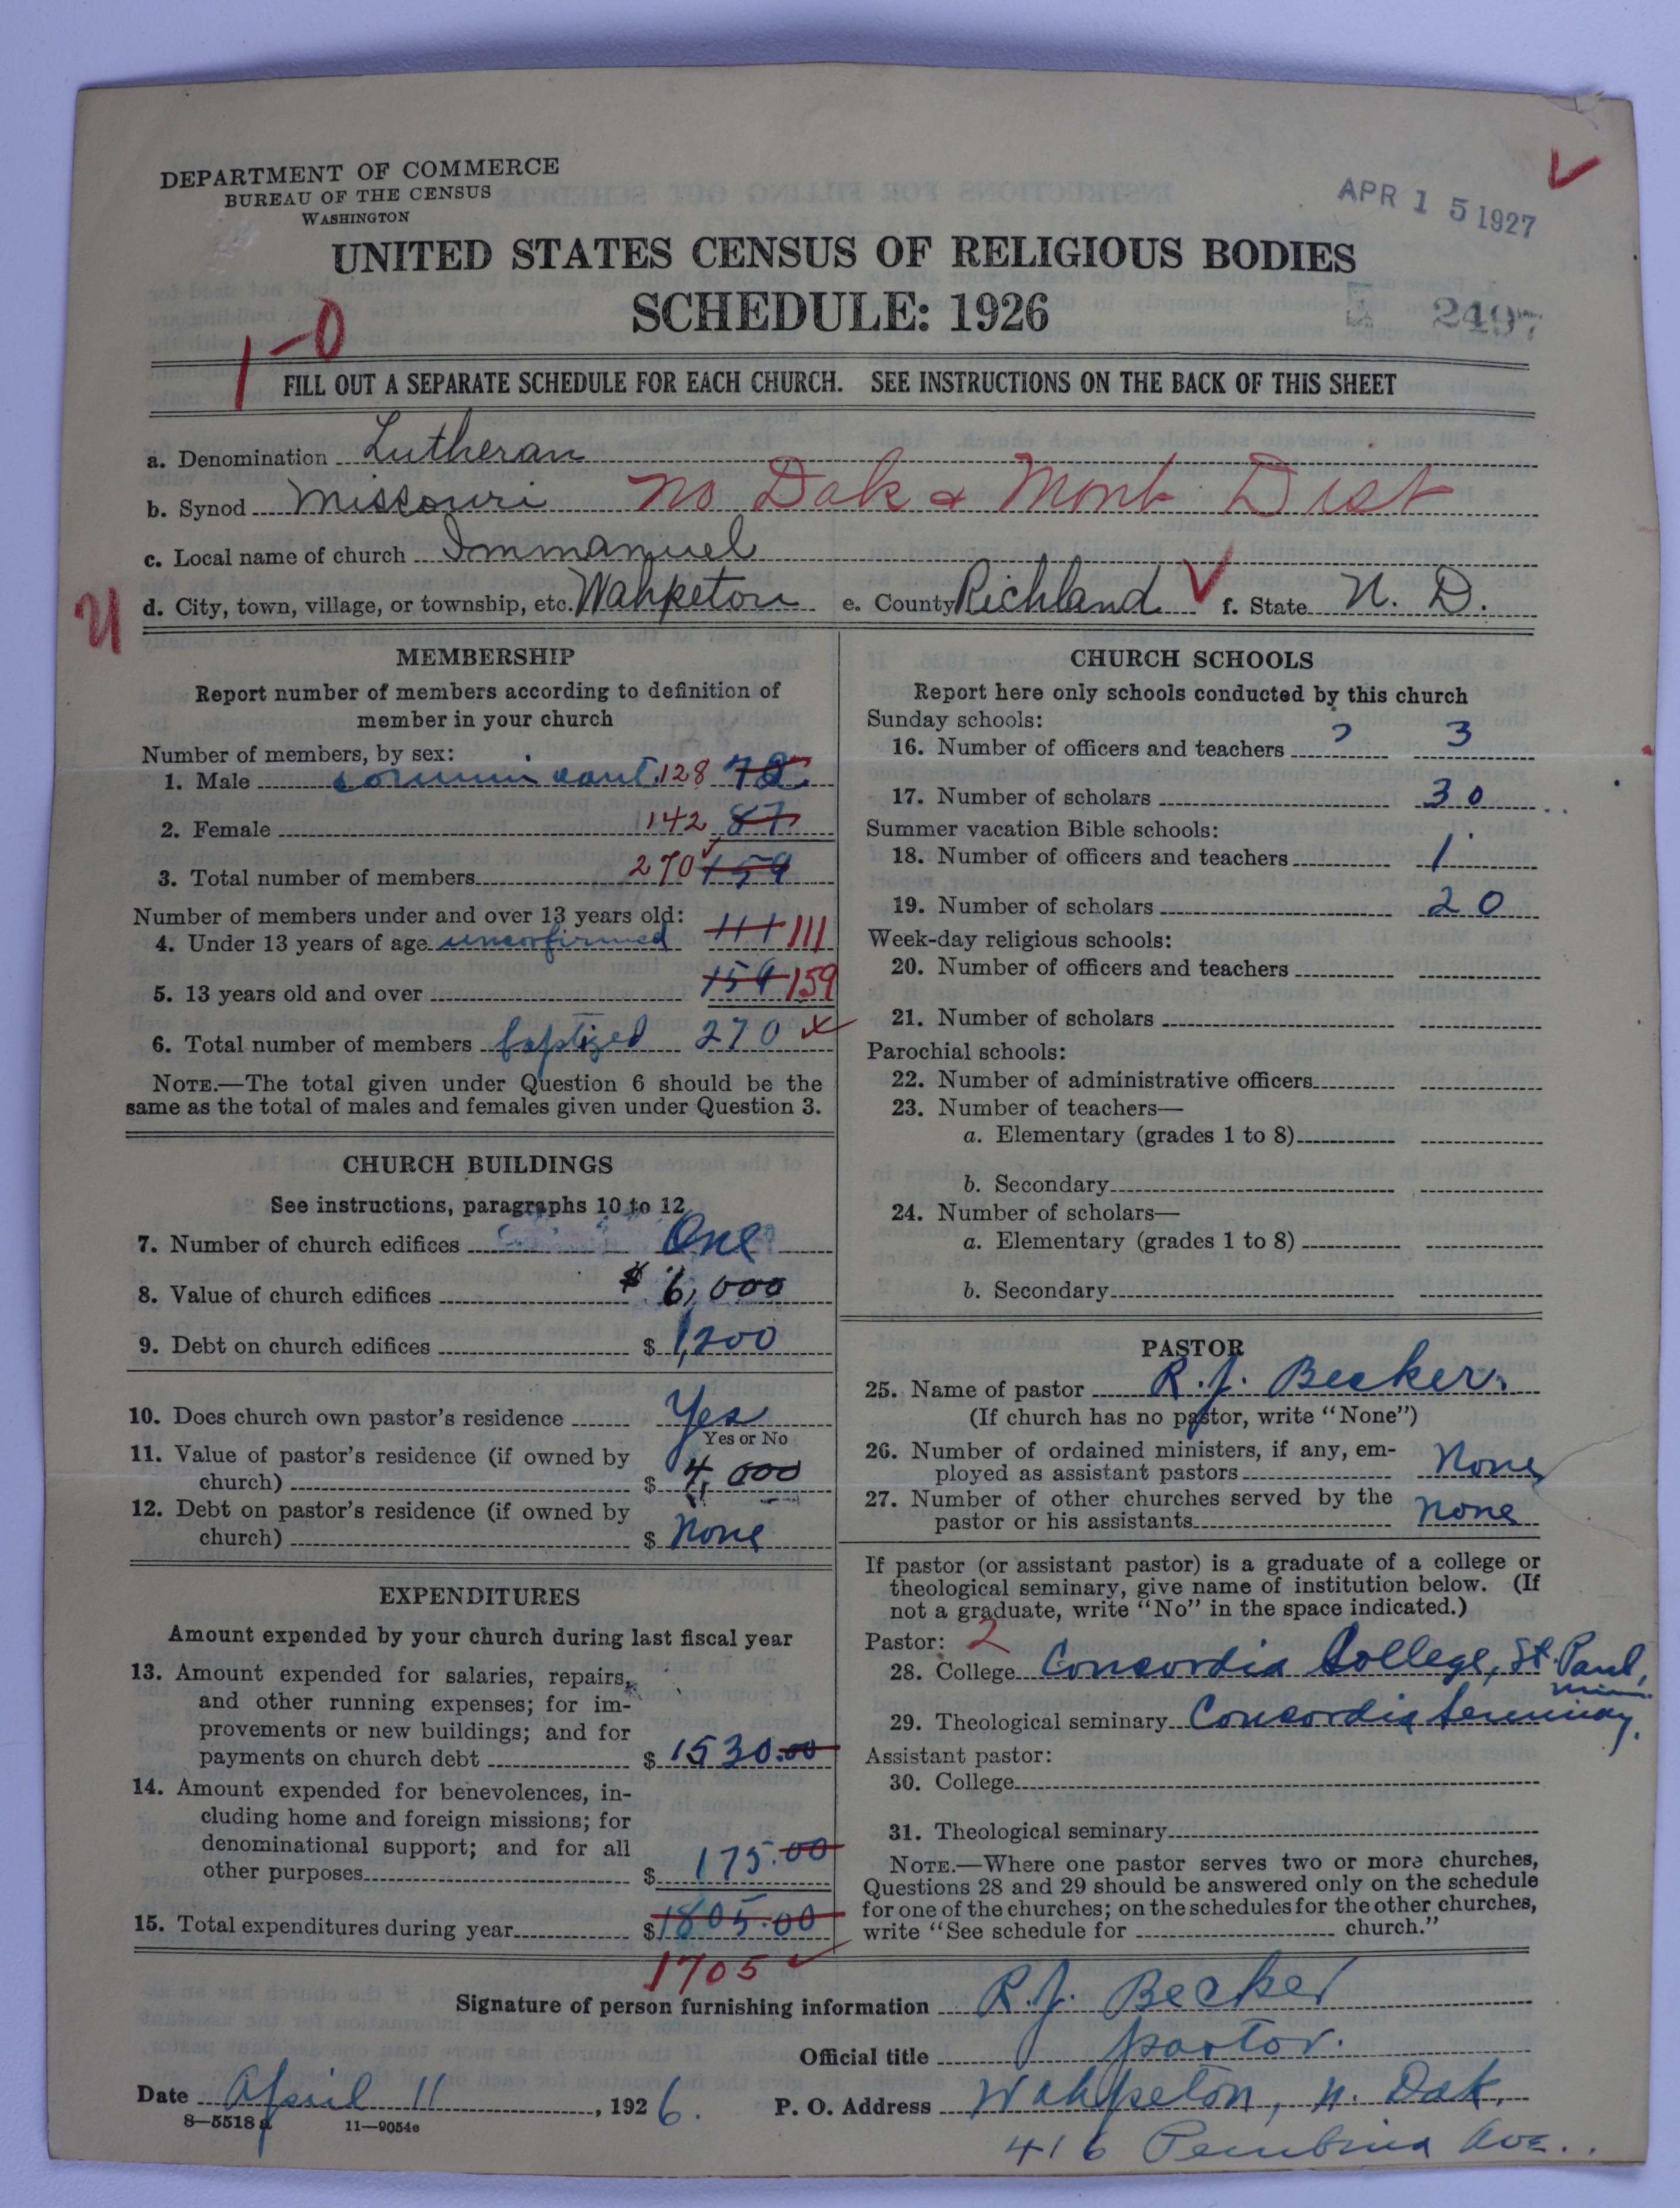 DEPARTMENT OF COMMERCE
BUREAU OF THE CENSUS
WASHINGTON
APR 15 1927
UNITED STATES CENSUS OF RELIGIOUS BODIES
SCHEDULE: 1926
2497
1-0
FILL OUT A SEPARATE SCHEDULE FOR EACH CHURCH. SEE INSTRUCTIONS ON THE BACK OF THIS SHEET
a. Denomination Lutheran
b. Synod Missouri No Dak & Mont Dist
c. Local name of church Immanuel
U d. City, town, village, or township, etc. Wahpeton e. County Richland f. State N. D.
MEMBERSHIP
Report number of members according to definition of
member in your church
Number of members, by sex:
1. Male communicant 128 72
2. Female 142 87
3. Total number of members 270 159
Number of members under and over 13 years old:
4. Under 13 years of age unconfirmed 111 111
5. 13 years old and over 159 159
6. Total number of members baptized 270
NOTE.—The total given under Question 6 should be the
same as the total of males and females given under Question 3.
CHURCH BUILDINGS
See instructions, paragraphs 10 to 12
7. Number of church edifices One
8. Value of church edifices $ 6,000
9. Debt on church edifices $ 1,200
10. Does church own pastor's residence Yes
Yes or No
11. Value of pastor's residence (if owned by
church) $ 4,000
12. Debt on pastor's residence (if owned by
church) $ None
EXPENDITURES
Amount expended by your church during last fiscal year
13. Amount expended for salaries, repairs,
and other running expenses; for im-
provements or new buildings; and for
payments on church debt $ 1530.00
14. Amount expended for benevolences, in-
cluding home and foreign missions; for
denominational support; and for all
other purposes $ 175.00
15. Total expenditures during year $ 1805.00
1705
CHURCH SCHOOLS
Report here only schools conducted by this church
Sunday schools:
16. Number of officers and teachers ? 3
17. Number of scholars 30
Summer vacation Bible schools:
18. Number of officers and teachers 1
19. Number of scholars 20
Week-day religious schools:
20. Number of officers and teachers
21. Number of scholars
Parochial schools:
22. Number of administrative officers
23. Number of teachers—
a. Elementary (grades 1 to 8)
b. Secondary
24. Number of scholars—
a. Elementary (grades 1 to 8)
b. Secondary
PASTOR
25. Name of pastor R. J. Becker
(If church has no pastor, write "None")
26. Number of ordained ministers, if any, em-
ployed as assistant pastors None
27. Number of other churches served by the
pastor or his assistants None
If pastor (or assistant pastor) is a graduate of a college or
theological seminary, give name of institution below. (If
not a graduate, write "No" in the space indicated.)
Pastor: 2
28. College Concordia College, St. Paul,
Minn.
29. Theological seminary Concordia Seminary.
Assistant pastor:
30. College
31. Theological seminary
NOTE.—Where one pastor serves two or more churches,
Questions 28 and 29 should be answered only on the schedule
for one of the churches; on the schedules for the other churches,
write "See schedule for church."
Signature of person furnishing information R. J. Becker
Official title pastor.
Date April 11, 1926. P. O. Address Wahpeton, N. Dak,
8—5518a 11—9054e
416 Pembina Ave.